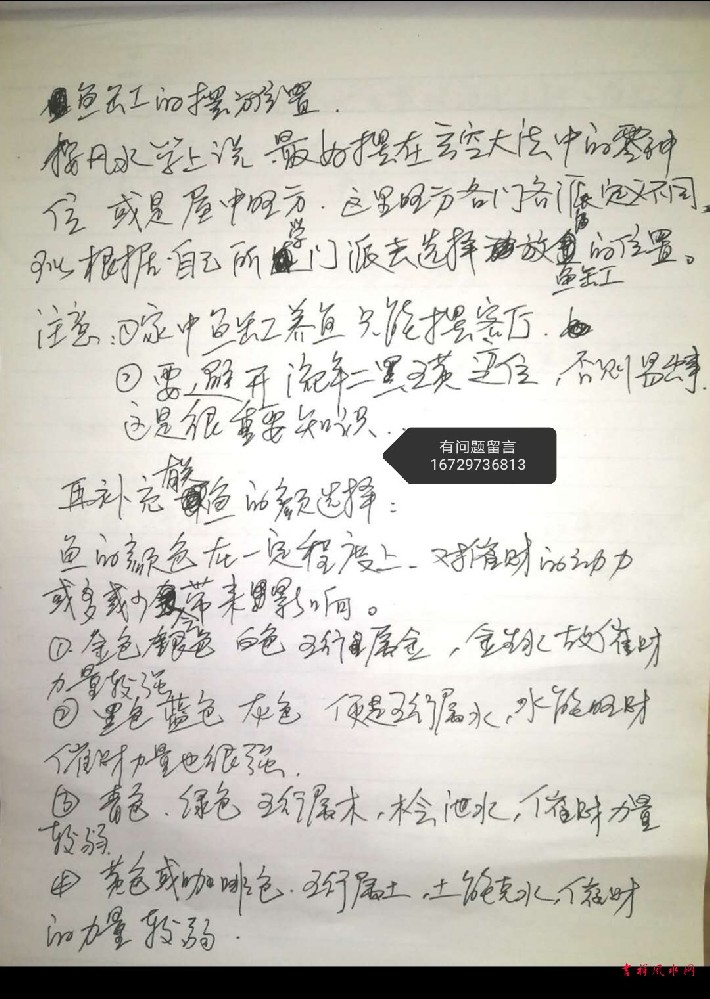 鱼缸的摆放位置.
按风水学上说 最好摆在玄空大法中的零神
位 或是屋中旺方. 这里旺方各门各派定义不同,
可以根据自己所学门派去选择放鱼缸的位置。
注意:①家中鱼缸养鱼只能摆客厅.
②要避开流年二黑五黄 位,否则易出事.
这是很重要知识..
有问题留言
16729736813
再补充有关鱼的颜选择:
鱼的颜色在一定程度上-对催财的动力
或多或少会带来影响。
①金色银色 白色 五行属金,金生水故催财
力量较强
②黑色蓝色 灰色 便是五行属水,水能旺财
催财力量也很强.
③青色.绿色 五行属木,木会泄水,催财力量
较弱
④黄色或咖啡色.五行属土,土能克水,催财
的力量较弱.
吉祥风水网